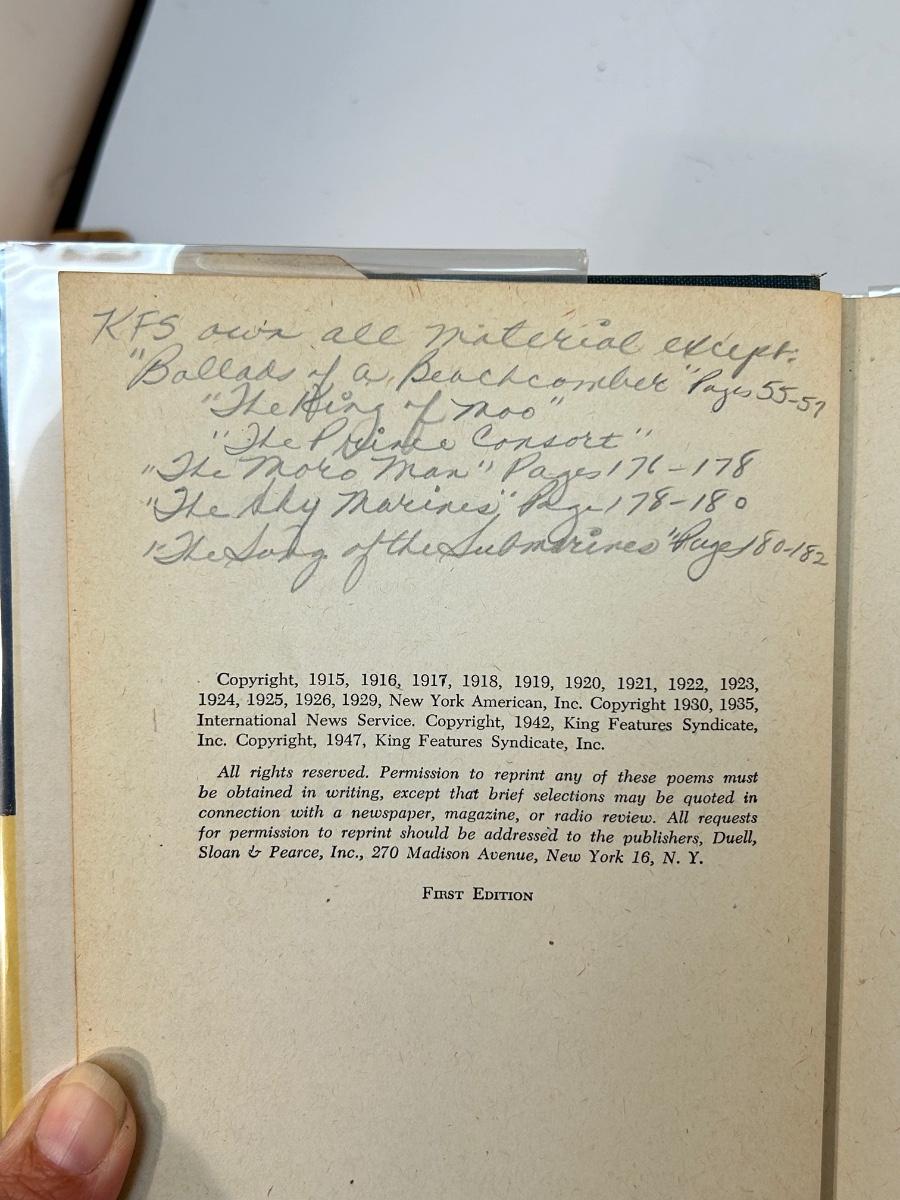 KFS own all material except:
"Ballads of a Beachcomber" Pages 55-57
"The King of Moo"
"The Prince Consort"
"The Moro Man" Pages 176-178
"The Sky Marines" Page 178-180
"The Song of the Submarines" Page 180-182
Copyright, 1915, 1916, 1917, 1918, 1919, 1920, 1921, 1922, 1923,
1924, 1925, 1926, 1929, New York American, Inc. Copyright 1930, 1935,
International News Service. Copyright, 1942, King Features Syndicate,
Inc. Copyright, 1947, King Features Syndicate, Inc.
All rights reserved. Permission to reprint any of these poems must
be obtained in writing, except that brief selections may be quoted in
connection with a newspaper, magazine, or radio review. All requests
for permission to reprint should be addressed to the publishers, Duell,
Sloan & Pearce, Inc., 270 Madison Avenue, New York 16, N. Y.
First Edition